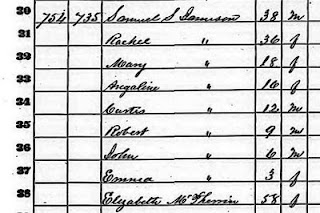 30 754 735 Samuel S Jamison 38 m
31 Rachel " 36 f
32 Mary " 18 f
33 Angaline " 16 f
34 Curtis " 12 m
35 Robert " 9 m
36 John " 6 m
37 Emma " 3 f
38 Elizabeth Mc 58 f